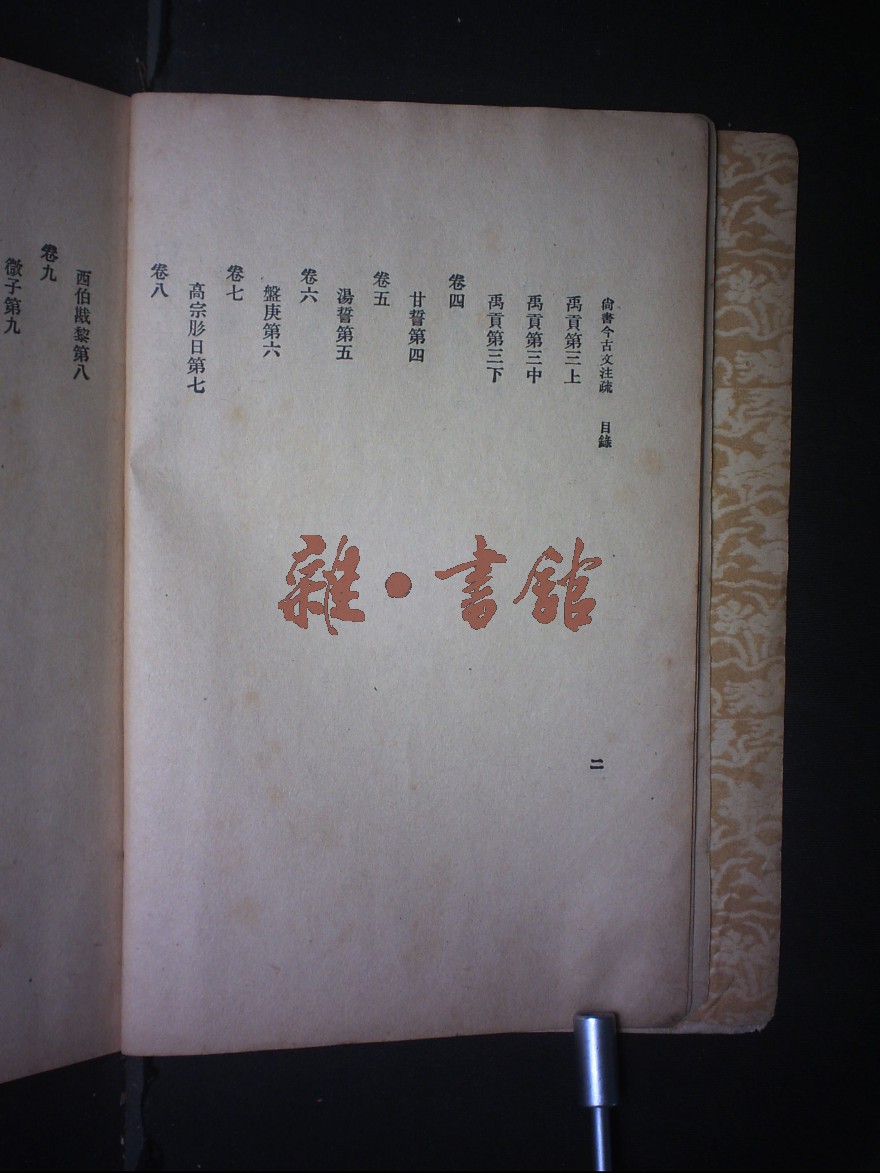 尙書今古文注疏 目錄
禹貢第三上
禹貢第三中
禹貢第三下
卷四
甘誓第四
卷五
湯誓第五
卷六
盤庚第六
卷七
高宗肜日第七
卷八
西伯戡黎第八
卷九
微子第九
二
雜·書館